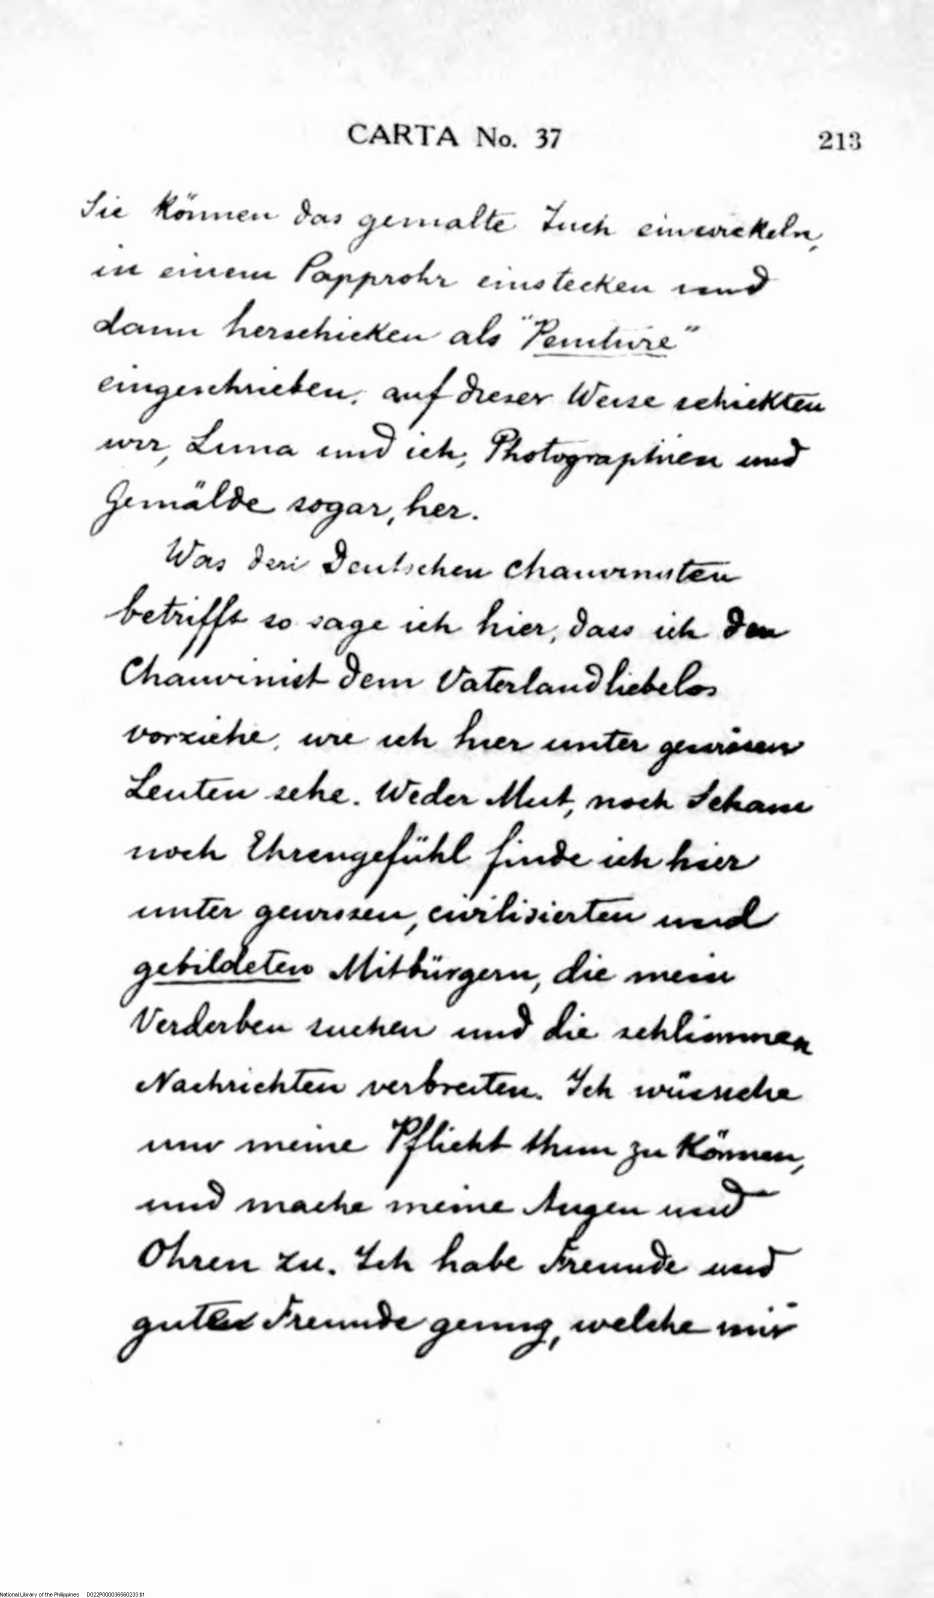 CARTA No. 37 213
Sie können das gemalte Tuch einwickeln,
in einem Papprohr einstecken und
dann herschicken als "Peinture"
eingeschrieben. auf dieser Weise schickten
wir, Luna und ich, Photographien und
Gemälde sogar, her.
Was den Deutschen Chauvinisten
betrifft so sage ich hier, dass ich den
Chauvinist dem Vaterlandliebelos
vorziehe, wie ich hier unter gewissen
Leuten sehe. Weder Mut, noch Scham
noch Ehrengefühl finde ich hier
unter gewissen, civilisierten und
gebildeten Mitbürgern, die mein
Verderben suchen und die schlimmen
Nachrichten verbreiten. Ich wünsche
nur meine Pflicht thun zu können,
und mache meine Augen und
Ohren zu. Ich habe Freunde und
gute Freunde genug, welche mir
National Library of the Philippines